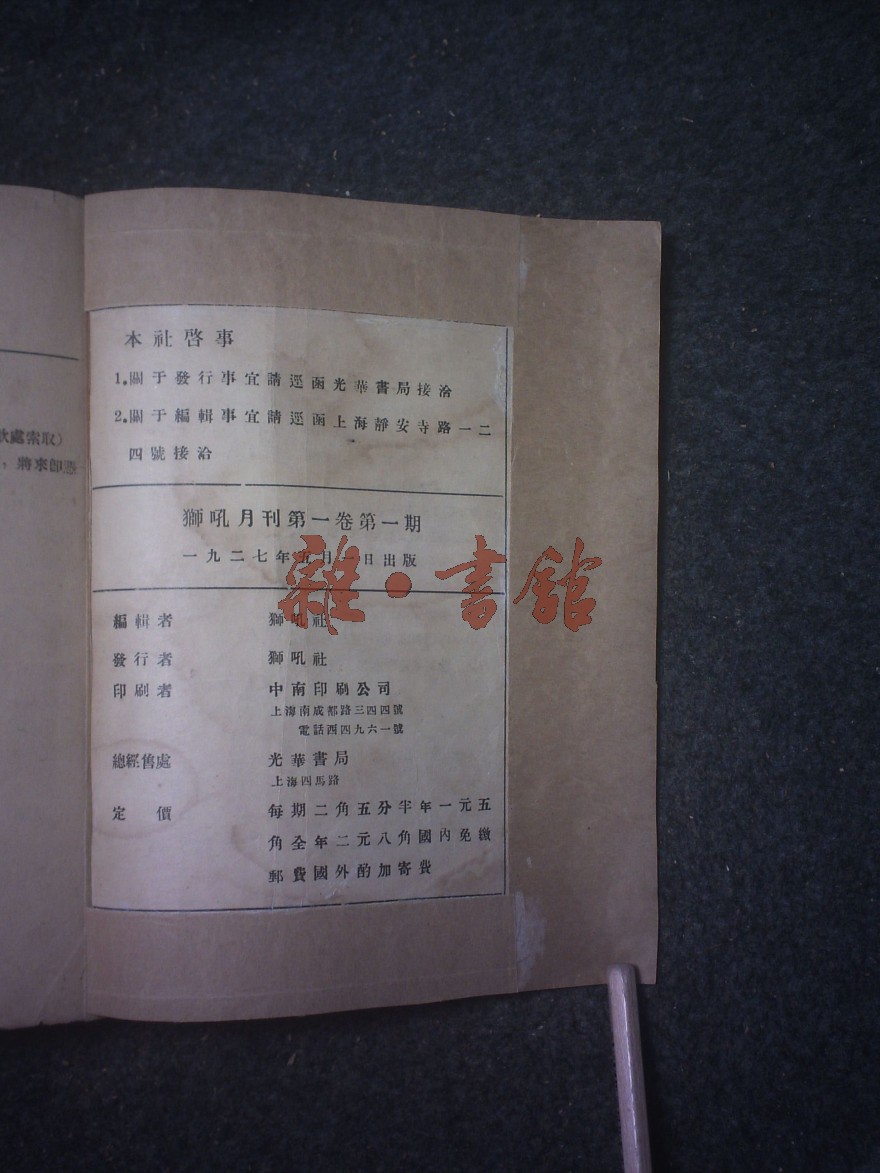 款處索取）
，將來卽憑
本社啓事
1.關于發行事宜請逕函光華書局接洽
2.關于編輯事宜請逕函上海靜安寺路一二
四號接洽
獅吼月刊第一卷第一期
一九二七年五月一日出版
雜·書館
編輯者 獅吼社
發行者 獅吼社
印刷者 中南印刷公司
上海南成都路三四四號
電話西四九六一號
總經售處 光華書局
上海四馬路
定價 每期二角五分半年一元五
角全年二元八角國內免繳
郵費國外酌加寄費